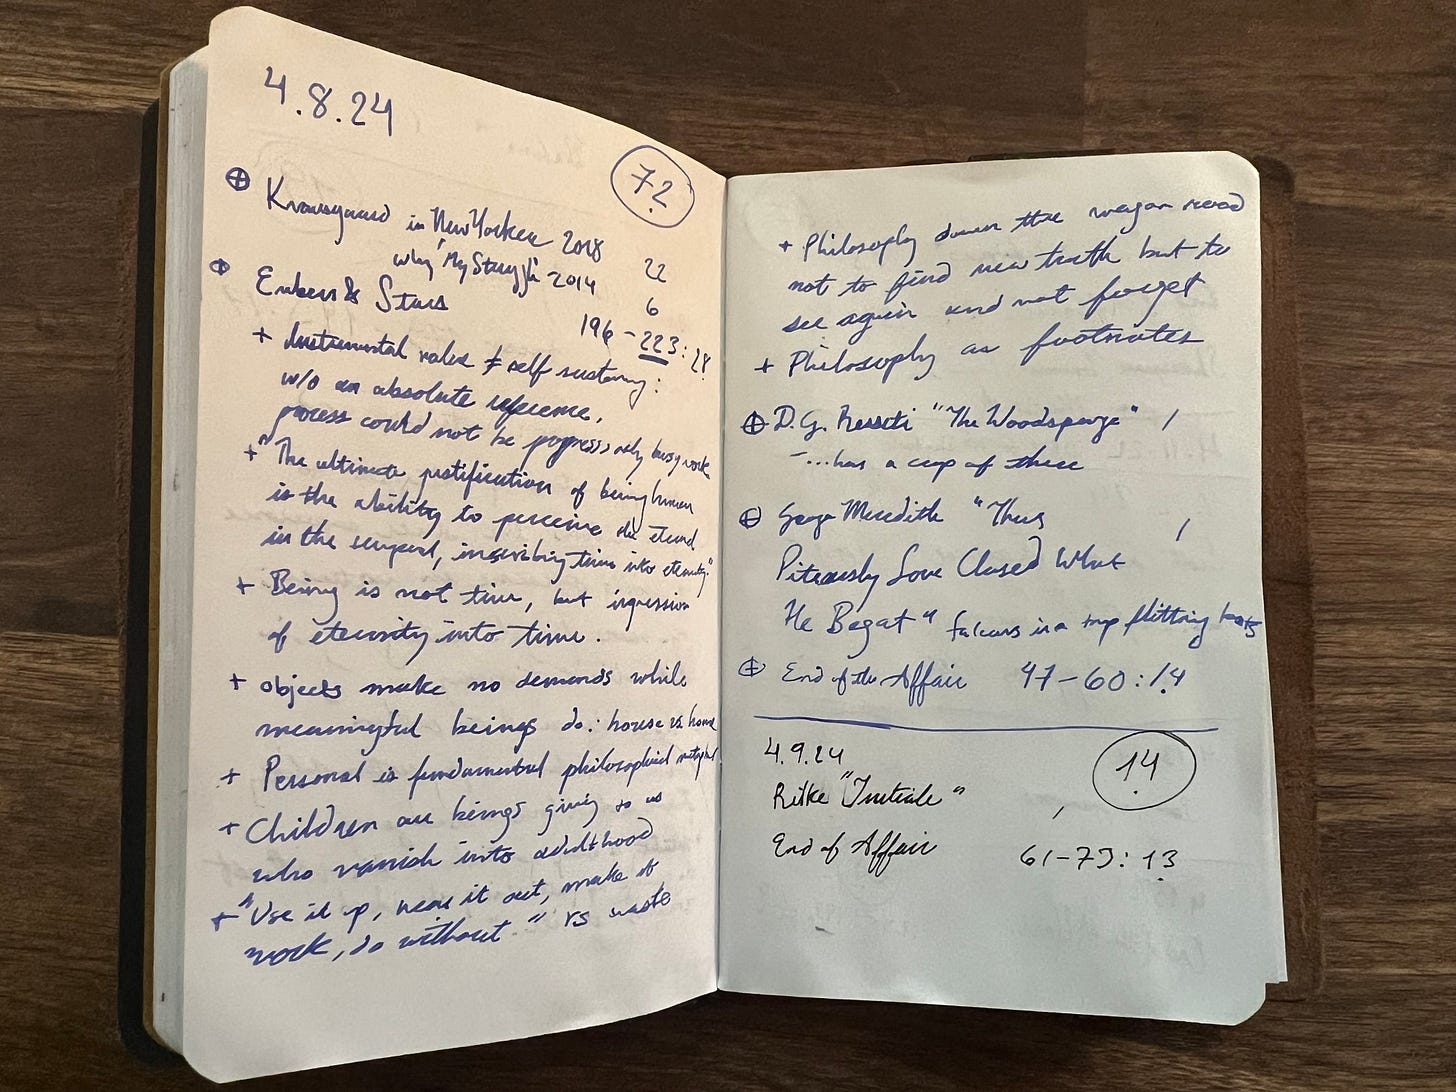 4.8.24
72
⊕ Knausgaard in New Yorker 2018 22
why "My Struggle" 2014 6
⊕ Embers & Stars 196-223:28
+ Instrumental value ≠ self sustaining:
w/o an absolute reference,
process could not be progress, only busy work
+ "The ultimate justification of being human
is the ability to perceive the eternal
in the temporal, inscribing time into eternity."
+ Being is not time, but ingression
of eternity into time.
+ objects make no demands while
meaningful beings do: house vs home
+ Personal is fundamental philosophical
+ Children are beings giving to us
who vanish into adulthood
+ "Use it up, wear it out, make it
work, do without" vs waste
+ Philosophy down the wagon road
not to find new truth but to
see again and not forget
+ Philosophy as footnotes
⊕ D.G. Rossetti "The Woodspurge" 1
- ...has a cup of three
⊕ George Meredith "Thus 1
Piteously Love Closed What
He Begat" falcons in a trap flitting bats
⊕ End of the Affair 47-60:14
4.9.24
14
Rilke "Initiale" 1
End of Affair 61-73:13